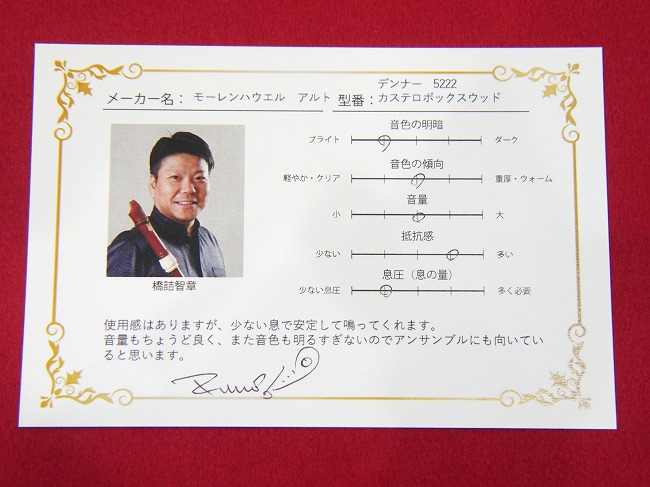 デンナー 5222
メーカー名： モーレンハウエル アルト 型番：カステロボックスウッド
音色の明暗
ブライト ダーク
音色の傾向
軽やか・クリア 重厚・ウォーム
音量
小 大
抵抗感
少ない 多い
息圧（息の量）
少ない息圧 多く必要
橋詰智章
使用感はありますが、少ない息で安定して鳴ってくれます。
音量もちょうど良く、また音色も明るすぎないのでアンサンブルにも向いてい
ると思います。